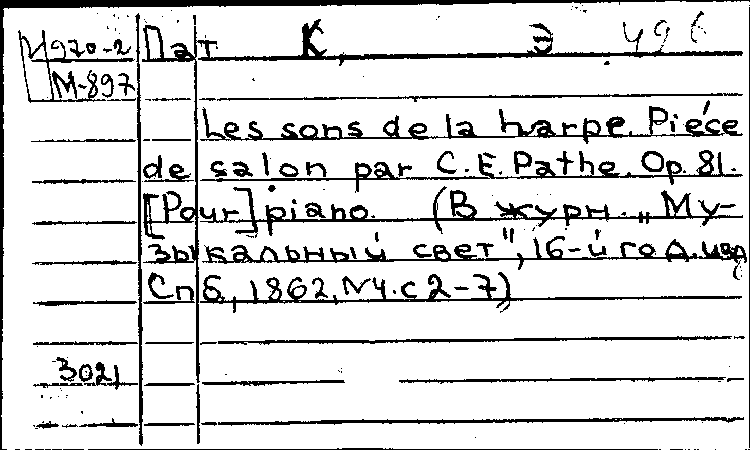 М970-2 Пат К. Э 496
М-897
Les sons de la harpe. Piéce
de salon par C. E. Pathe. Op. 81.
[Pour] piano. (В журн. „Му-
зыкальный свет", 16-й год. изд
Спб, 1862, N4. с 2-7)
3021